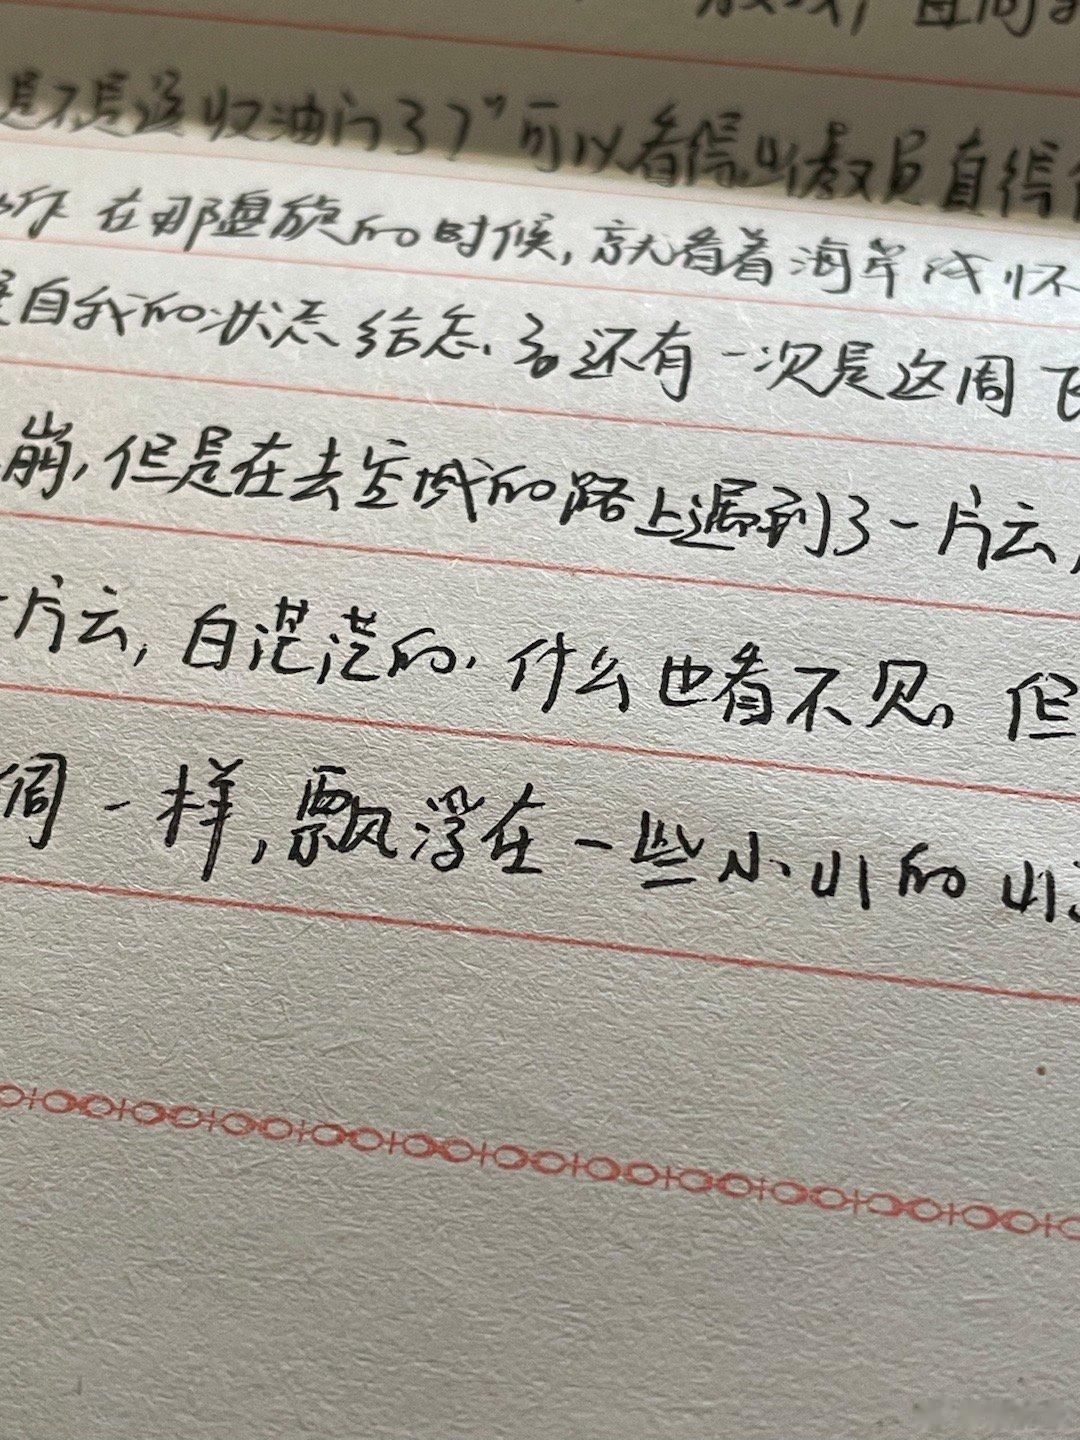 是不是该收油门了？”可以看得出教员真得
作 在那盘旋的时候，就看着海岸线怀
自我的状态给忘了。还有一次是这周飞
崩，但是在去空域的路上遇到了一片云，
一片云，白茫茫的，什么也看不见。但
一样，飘浮在一些小山的山